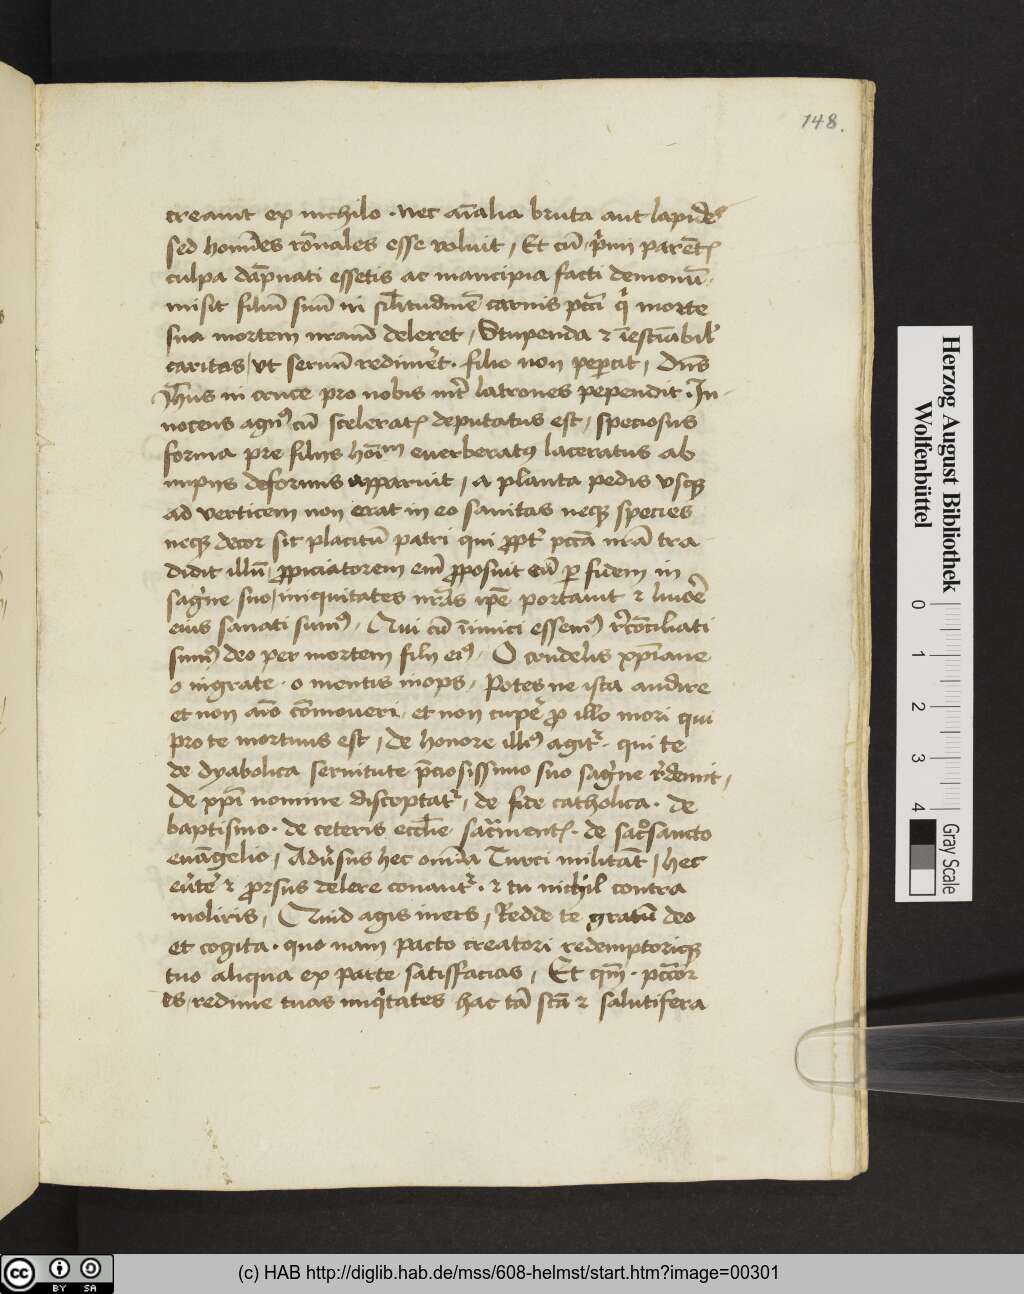 148.
creauit ex nichilo · nec aīalia bruta aut lapides
sed homīes rōnales esse voluit, Et cū prīmi parēt
culpa dāpnati essetis ac mancipia facti demoniū ·
misit filiū suū in sīlitudinē carnis pctī q' morte
sua mortem nram̄ deleret, Stupenda ⁊ īestīabil'
caritas, vt seruū redimeret · filio non pepercit, Dn̄s
Jhūs in cruce pro nobis int' latrones pependit · In-
nocens agn9 cū scelerat deputatus est, speciosus
forma pre filijs hoīm euerberatꝰ laceratus ab
impijs deformis apparuit, a planta pedis vsqꝫ
ad verticem non erat in eo sanitas neqꝫ species
neqꝫ decor sic placitū patri qui ꝓpt' pctā nrā tra
didit illū, ꝓpiciatorem em̄ ꝓposuit eū ꝑ fidem in
sag'ne suo, iniquitates nr̄as ip̄e portauit ⁊ liuore
eius sanati sum9, Qui cū inimici essem9 r'cōciliati
sum9 deo per mortem filij ei9, O crudelis xp̄iane
o ingrate · o mentis inops, Potes ne ista audire
et non aīo cōmoueri, et non cup'e ꝓ illo mori qui
pro te mortuus est, de honore illi9 agit' · qui te
de dyabolica seruitute p̄ciosissimo suo sag'ne r'demit,
De xp̄i nomine disceptat', de fide catholica · de
baptismo · de ceteris eccl'ie sac'ment · de sac'osancto
euāgelio, Adu'sus hec om̄ia Turci militāt, hec
eu'te' ⁊ ꝓrsus delere conant' · ⁊ tu nichil contra
moliris, Quid agis iners, Redde te gratū deo
et cogita · quo nam pacto creatori redemptoriqꝫ
tuo aliqua ex parte satisffacias, Et qm̄ · pctōr
es, redime tuas iniq'tates hac tā sctā ⁊ salutifera
Herzog August Bibliothek
Wolfenbüttel
0 1 2 3 4
Gray Scale
cc BY SA
(c) HAB http://diglib.hab.de/mss/608-helmst/start.htm?image=00301